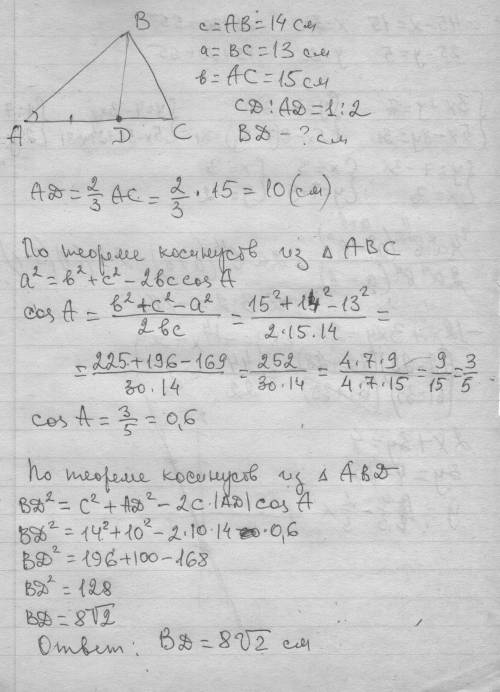 B
c = AB = 14 см
a = BC = 13 см
в = AC = 15 см
CD : AD = 1 : 2
BD - ? см
A D C
AD = 2/3 AC = 2/3 · 15 = 10 (см)
По теореме косинусов из △ ABC
a² = в² + c² - 2вc cos A
cos A = (в² + c² - a²)/(2вc) = (15² + 14² - 13²)/(2·15·14) =
= (225 + 196 - 169)/(30·14) = 252/(30·14) = (4·7·9)/(4·7·15) = 9/15 = 3/5
cos A = 3/5 = 0,6
По теореме косинусов из △ ABD
BD² = c² + AD² - 2c·|AD| cos A
BD² = 14² + 10² - 2·10·14·0,6
BD² = 196 + 100 - 168
BD² = 128
BD = 8√2
Ответ: BD = 8√2 см